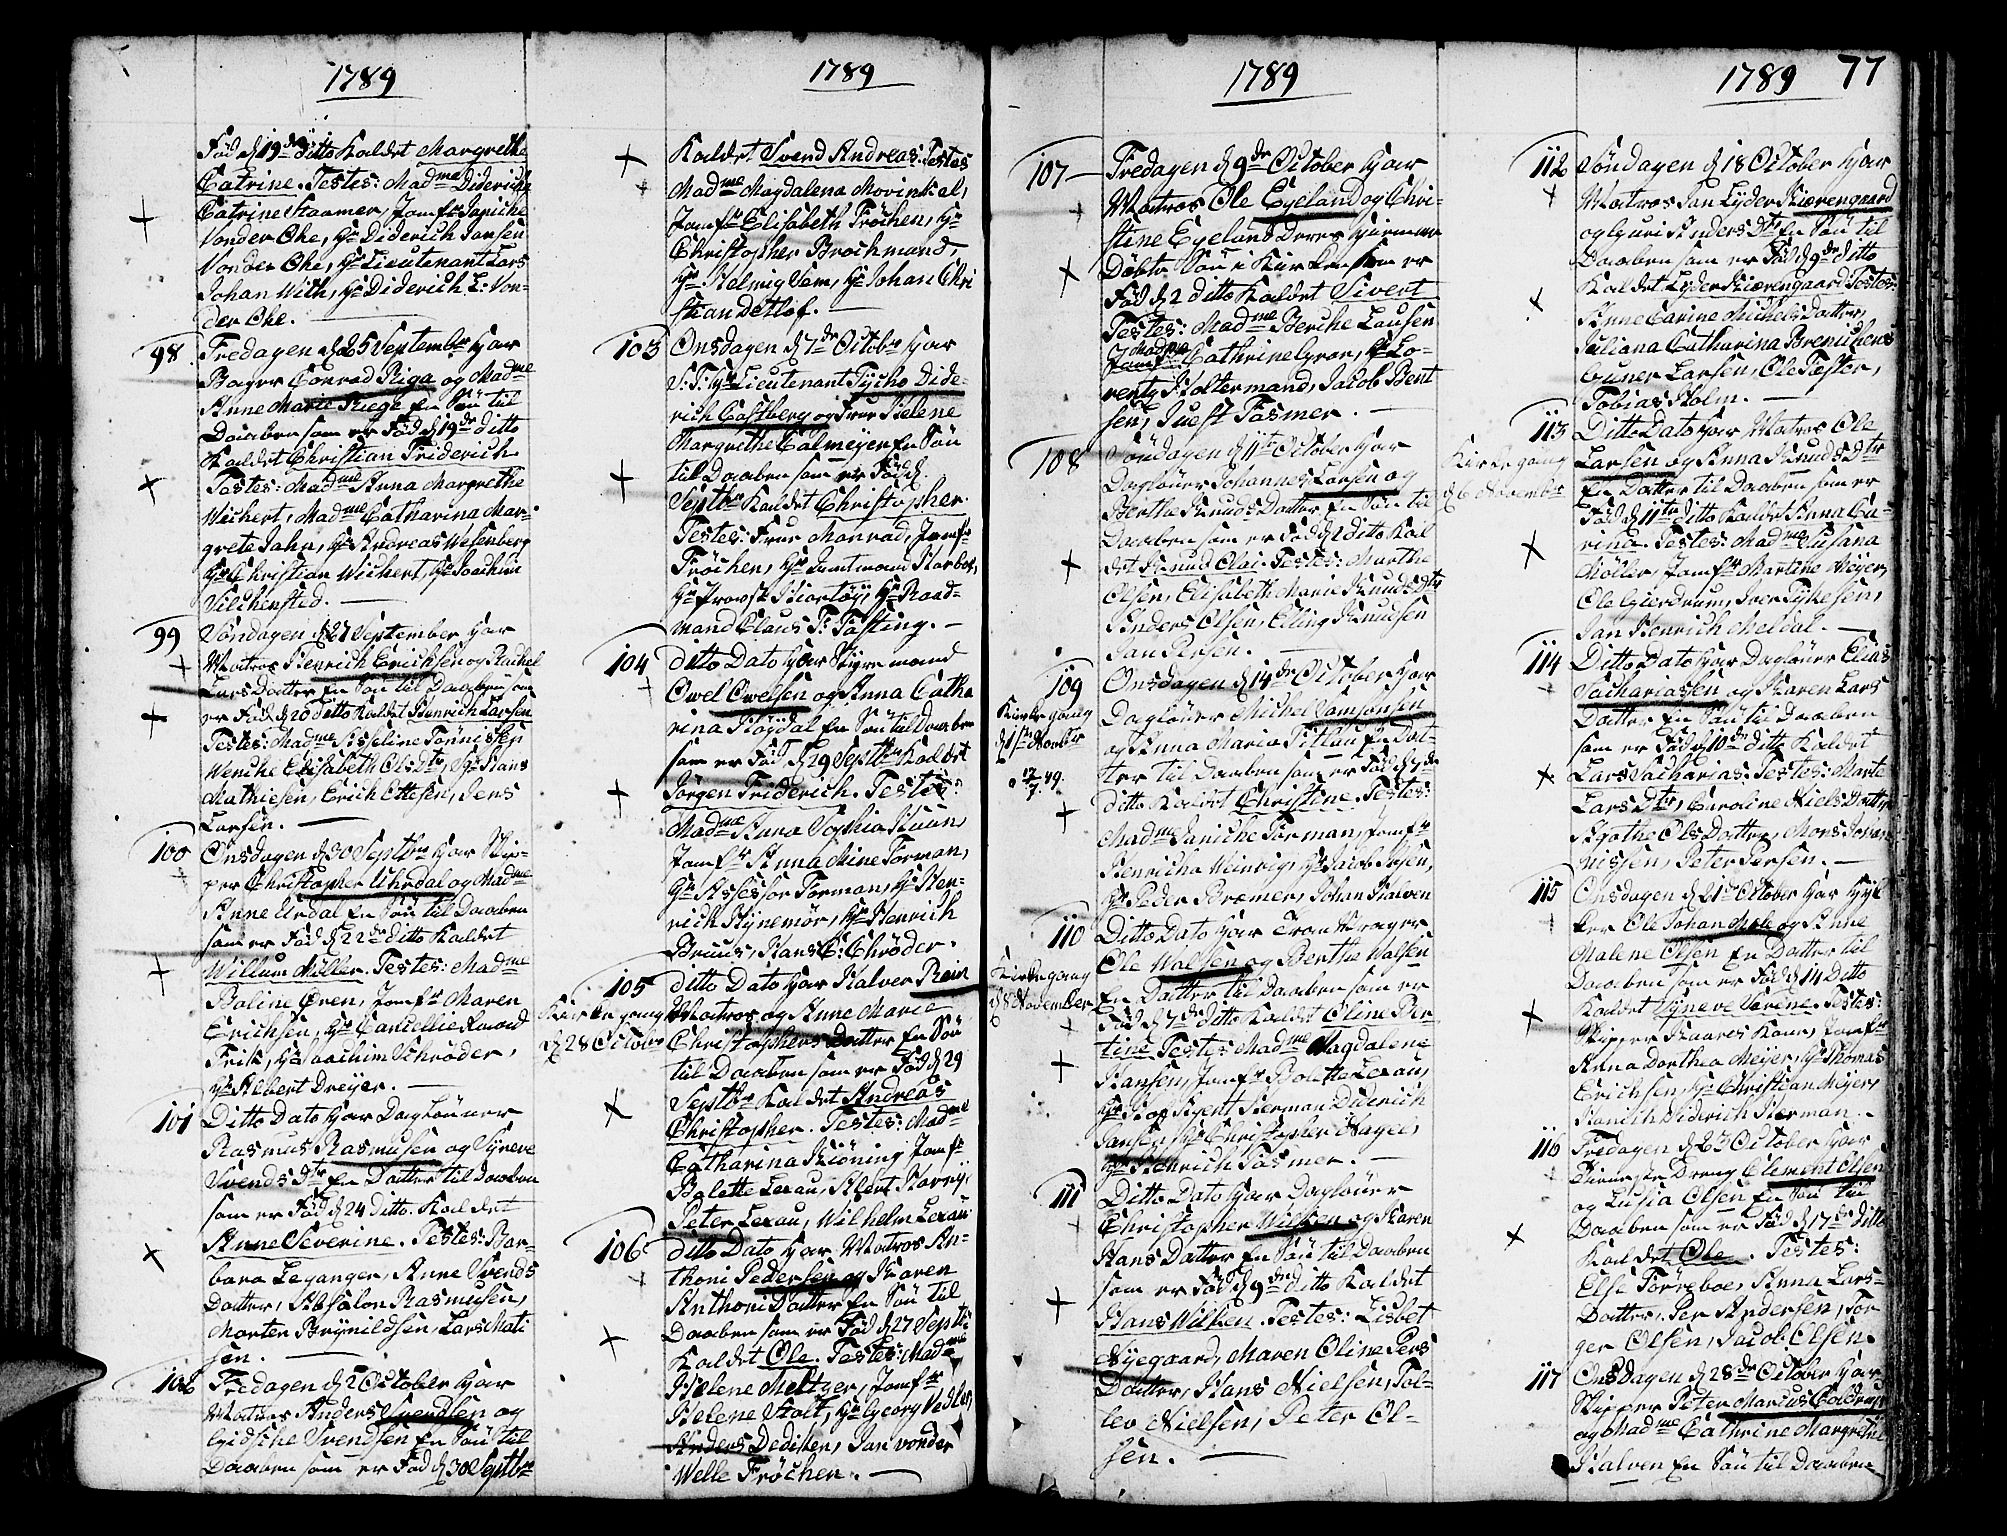 1789
Fød d 19de ditto Kaldet Margrethe
Catrine. Testes: Madme Diderich
Catrine Staamer, Jomfr Janiche
Vonder Ohe, Hr Diderich Jansen
Vonder Ohe, Hr Lieutenant Lars
Johan With, Hr Diderich L: Von-
der Ohe.
98. Fredagen d 25 Septembr har
Bager Conrad Riga og Madme
Anne Marie Riege En Søn til
Daaben som er Fød d 19de ditto
Kaldet Christian Friderich
Testes: Madme Anna Margrethe
Wichert, Madme Catharina Mar-
grete Jahn, Hr Andreas Wesenberg
Hr Christian Wichert, Hr Joachim
Vilchensted.
99 Søndagen d 27 September har
Matros Henrich Erichsen og Rachel
Lars Datter En Søn til Daaben som
er Fød d 20 ditto Kaldet Henrich Larsen
Testes: Madme Asseline Tønnissen
Wenche Elisabeth Olsdtr, Hr Hans
Mathiesen, Erich Ottesen, Jens
Larsen.
100 Onsdagen d 30 Septbr har Skip-
per Christopher Uhrdal og Madme
Anne Urdal En Søn til Daaben
som er Fød d 22de ditto Kaldet
Willum Møller. Testes: Madme
Boline Øren, Jomfr Maren
Erichsen, Hr Cancellie Raad
Friis, Hr Joachim Schrøder,
Hr Albert Dreyer.
101 Ditto Dato har Dagløuner
Rasmus Rasmusen og Syneve
Svends Dtr En Datter til Daaben
som er Fød d 24 ditto. Kaldet
Anne Severine. Testes: Bar-
bara Leganger, Anne Svends
Datter, Absalon Rasmusen,
Morten Brynildsen, Lars Mati
sen.
102 Fredagen d 2 October har
Matros Anders Svendsen og
Gidsche Svendsen En Søn til
Daaben som er Fød d 30 Septbr
1789
Kaldet Svend Andreas. Testes
Madme Magdalena Movinkel,
Jomfr Elisabeth Frøchen, Hr
Christopher Brochmand,
Hr Helmig Sem, Hr Johan Chri
stian Detlof.
103 Onsdagen d 7de Octobr har
S: T: Hr Lieutenant Tycho Dide-
rich Castberg og Frue Helene
Margrethe Calmeyer En Søn
til Daaben som er Fød d
Septbr Kaldet Christopher.
Testes: Frue Monrad, Jomfr
Frøchen, Hr Amtmand Horboe,
Hr Provst Hiortøy, Hr Raad-
mand Claus F: Fasting.
104 ditto Dato har Styremand
Owel Owelsen og Anna Catha
rina Høydal En Søn til Daaben
som er Fød d 29 Septbr Kaldet
Jørgen Friderich. Testes:
Madme Anna Sophia Stuun,
Jomfr Anna Mine Forman,
Hr Assessor Forman, Hr Hen-
rich Stynemør, Hr Henrich
Bruus, Hans C: Chrøder.
105 ditto Dato har Halver Rein
Kirkegang
d 28 October
Matros og Anne Marie
Christophers Datter En Søn
til Daaben som er Fød d 29
Septbr Kaldet Andreas
Christopher. Testes: Madme
Catharina Kiøning Jomfr
Bolette Lexau, Alert Horny,
Peter Lexau, Wilhelm Lexau
106 ditto Dato har Matros An-
thoni Pedersen og Karen
Anthoni Datter En Søn til
Daaben som er Fød d 27 Septbr
Kaldet Ole. Testes: Madme
Helene Meltzer, Jomfr
Helene Holt, Hr Georg Vedeler,
Anders Dedichen, Jan vonder
Welle Frøchen.
1789
107 Fredagen d 9de October har
Matros Ole Egeland og Chri-
stine Egeland Deres hiemme
Døbte Søn i Kirken som er
Fød d 2 ditto Kaldet Sivert
Testes: Madme Berthe Lausen
Madme Cathrine Gran, Hr Lo-
rentz Holtermand, Jacob Bent
sen, Juest Fasmer.
108 Søndagen d 11te October har
Dagløner Johannes Larsen og
Berthe Knuds Datter En Søn til
Daaben som er Fød d 2 ditto Kal
det Knud Olai. Testes: Marthe
Olsen, Elisabeth Marie Knudsdtr
Anders Olsen, Elling Knudsen
Jan Persen.
109 Onsdagen d 14de October har
Kirkegang
d 1ste Novbr
Dagløner Michel Samsonsen
og Anna Maria Titlau En Dat-
ter til Daaben som er Fød d 7de
ditto Kaldet Christine. Testes:
Madme Janiche Forman, Jomfr
Henricha Meinrig, Hr Jacob Ibsen,
Hr Peder Bræmer, Johan Halven
110 Ditto Dato har Trandrager
Kirkegang
d 8 November
Ole Walsen og Berthe Walsen
En Datter til Daaben som er
Fød d 7de ditto Kaldet Oline Pe-
tine Testes Madme Magdalene
Hansen, Jomfr Bolette Lexau,
Hr Hof Agent Herman Diderich
Jansen Hr Christopher Hagee,
Hr Henrich Fasmer.
111 Ditto Dato har Dagløner
Christopher Wilken og Karen
Hans Datter En Søn til Daaben
som er Fød d 9de ditto Kaldet
Hans Wilken. Testes: Lisbet
Nyegaard, Maren Oline Pers
Datter, Hans Nielsen, Tol-
lev Nielsen, Peter Ol-
sen.
1789 77
112 Søndagen d 18 October har
Matros Jan Lyder Kierengaard
og Guri Anders Dtr En Søn til
Daaben som er Fød d 9de ditto
Kaldet Lyder Kierengaard Testes:
Anne Carine Michels Datter,
Juliana Catharina Bremichens
Guner Larsen, Ole Pæster,
Tobias Holm.
113 Ditto Dato har Matros Ole
Kirkegang
d 6 Novembr
Larsen og Anna Knuds Dtr
En Datter til Daaben som er
Fød d 11te ditto Kaldet Anna Ca-
rina. Testes: Madme Susana
Møller, Jomfr Martine Meyer,
Ole Gierdrum, Iver Tykesen,
Jan Henrich Meldal.
114 Ditto Dato har Dagløner Elias
Sachariassen og Karen Lars
Datter En Søn til Daaben
som er Fød d 10de ditto Kaldet
Lars Sacharias: Testes: Marte
Lars Dtr, Caroline Niels Datter
Agathe Ols Datter, Mons Johan
nissen, Peter Persen.
115 Onsdagen d 21de October har Kyk
ker Ole Johan Mele og Anne
Malene Olsen En Datter til
Daaben som er Fød d 14 Ditto
Kaldet Syneve Verine. Testes:
Skipper Haares Kone, Jomfr
Anna Dorthea Meyer, Hr Thomas
Erichsen, Hr Christian Meyer,
Hanich Diderich Herman.
116 Fredagen d 23 October har
Tieneste Dreng Clement Olsen
og Lusia Olsen En Søn til
Daaben som er Fød d 17de ditto
Kaldet Ole. Testes:
Else Førreboe, Anna Lars-
Datter, Per Andersen, Tor
ger Olsen, Jacob Olsen.
117 Onsdagen d 28de October har
Skipper Peter Marcus Coldevin
og Madme Cathrine Margrethe
Halven En Søn til Daaben